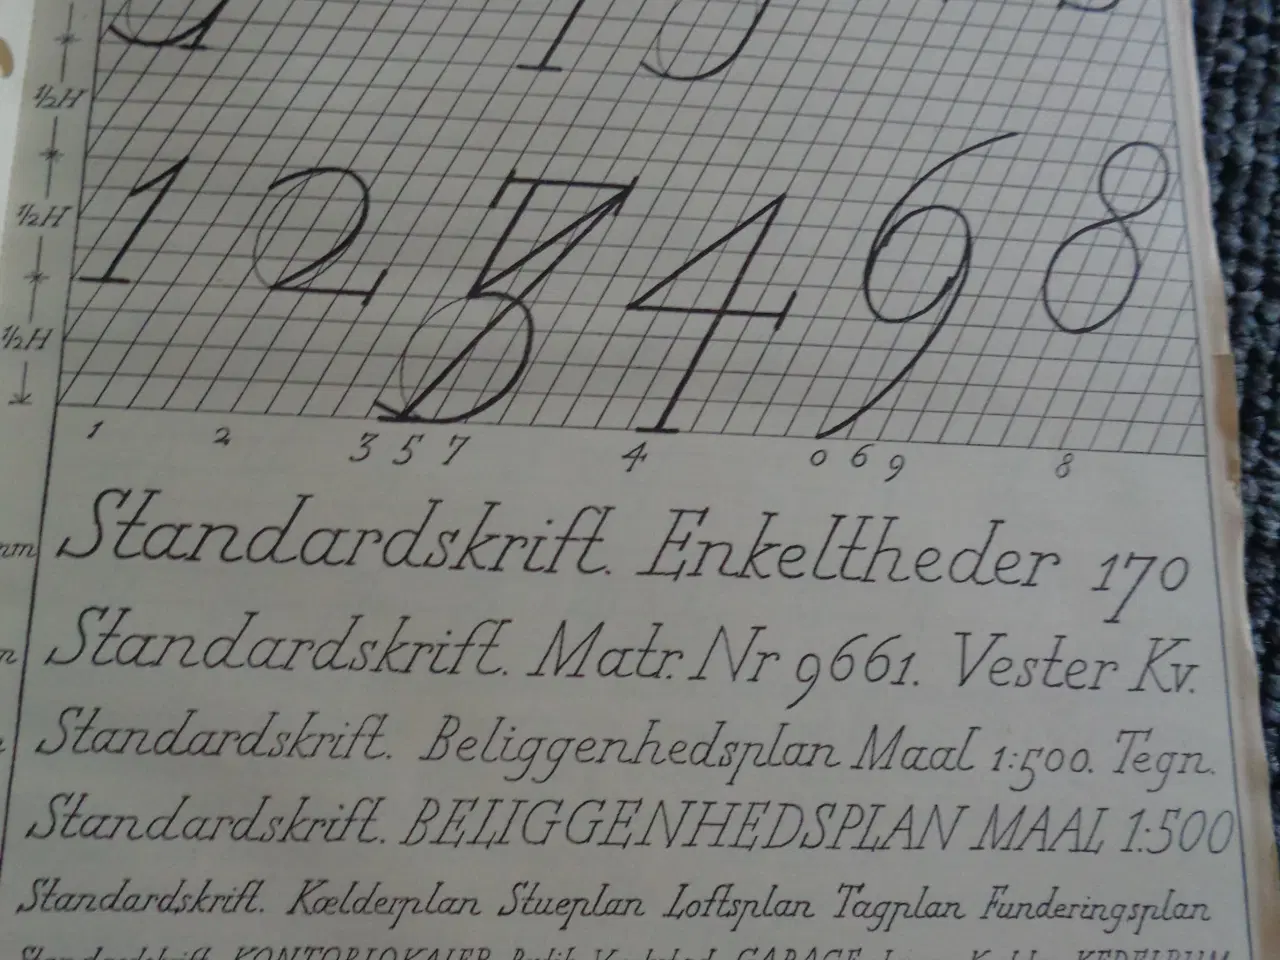 ½H
½H
½H
1 2 3 4 6 8
1 2 3 5 7 4 0 6 9 8
Standardskrift. Enkeltheder 170
Standardskrift. Matr. Nr 9661. Vester Kv.
Standardskrift. Beliggenhedsplan Maal 1:500. Tegn.
Standardskrift. BELIGGENHEDSPLAN MAAL 1:500
Standardskrift. Kælderplan Stueplan Loftsplan Tagplan Funderingsplan
Standardskrift. KONTORLOKALER